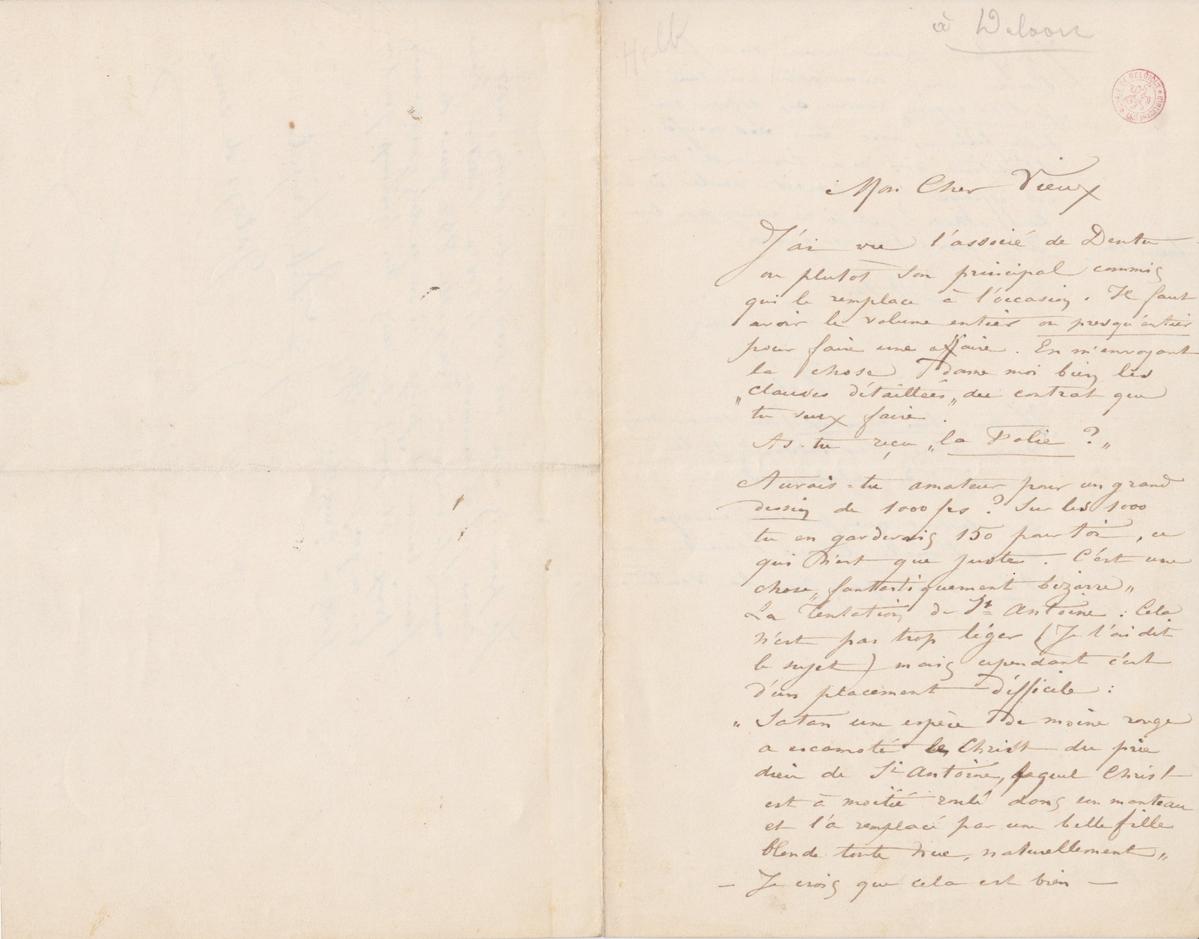 à Delvort
Mon Cher Vieux
J'ai vu l'associé de Dentu
ou plutot son principal commis
qui le remplace à l'occasion. Il faut
avoir le volume entier ou presqu'entier
pour faire une affaire. En m'envoyant
la chose donne moi bien les
„clauses détaillées„ du contrat que
tu veux faire.
As-tu reçu „la Folie?„
Aurais-tu amateur pour un grand
dessin de 1000 frs? Sur les 1000
tu en garderais 150 pour toi, ce
qui n'est que juste. C'est une
chose „fantastiquement bizarre„
La Tentation de St Antoine: Cela
n'est pas trop léger (Je t'ai dit
le sujet) mais cependant c'est
d'un placement difficile:
„Satan une espèce de moine rouge
a escamoté le Christ du prie
dieu de St Antoine, lequel Christ
est à moitié roulé dans un manteau
et l'a remplacé par une belle fille
blonde toute nue, naturellement„
— Je crois que cela est bien —